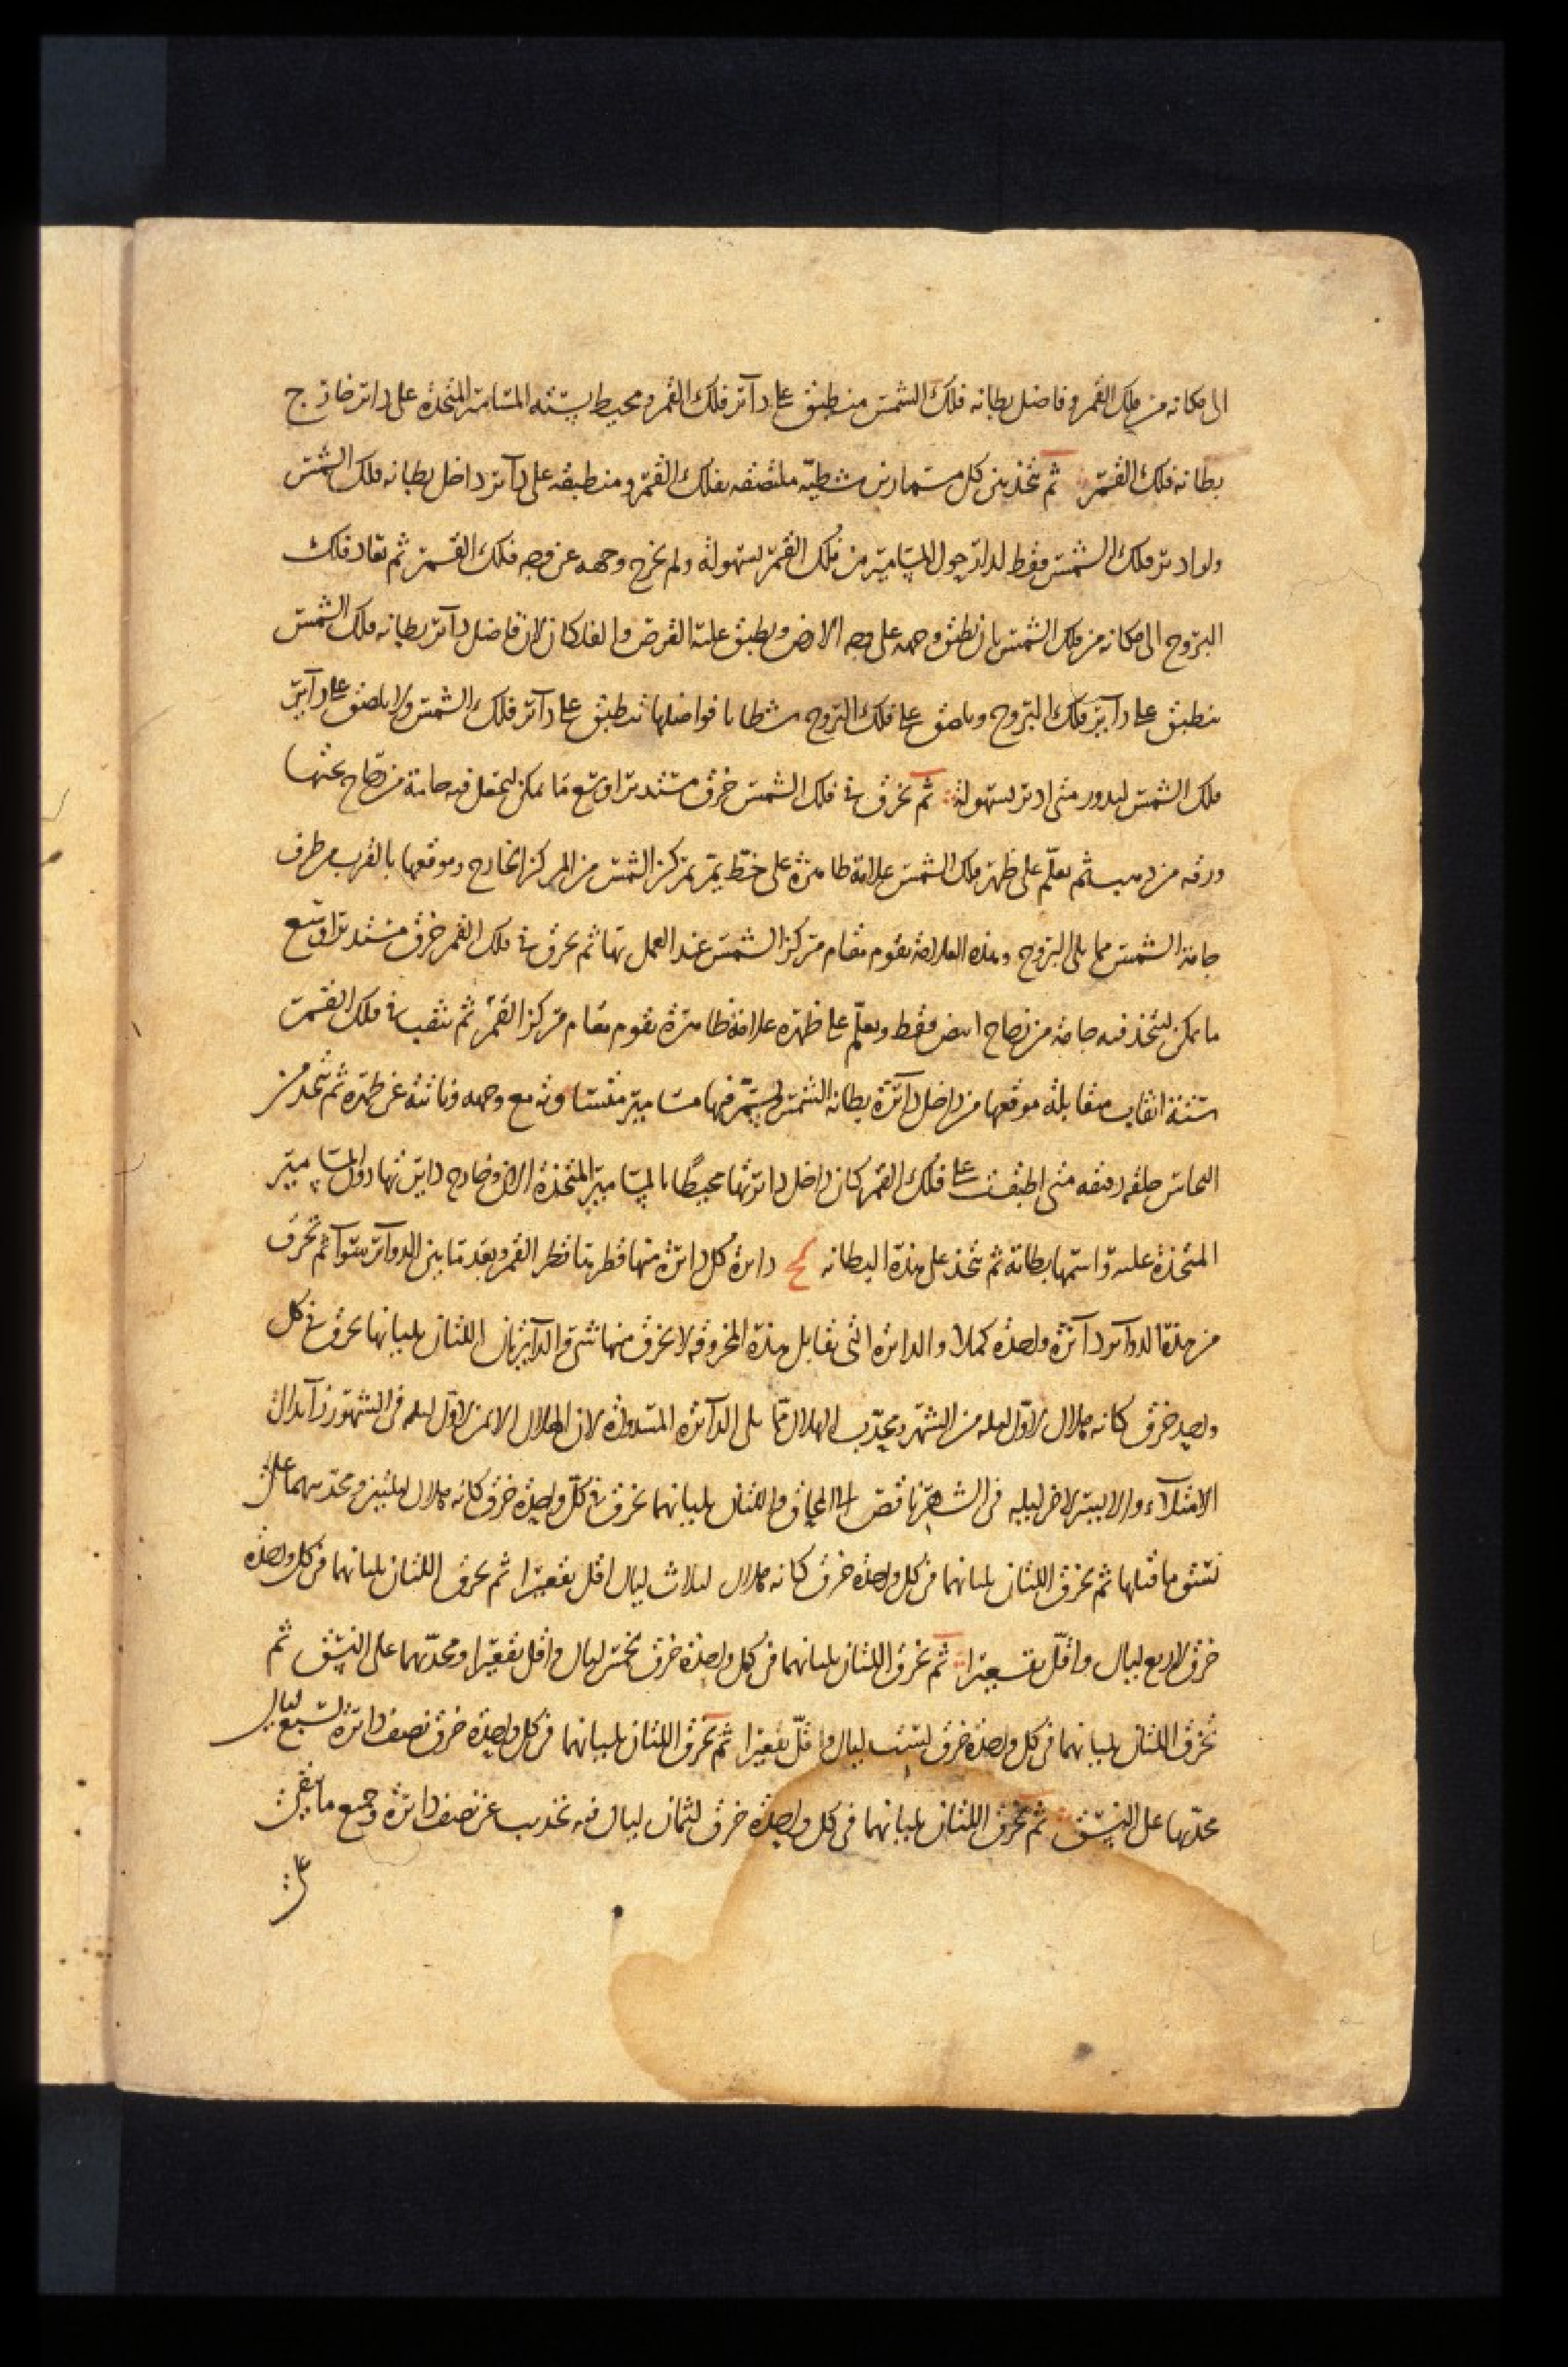 الى مكانه من فلك القمر وفاضل بطانه فلك الشمس منطبق على دائر فلك القمر ومحيط بستة المسامير المتخذة على دائر خارج
بطانه فلك القمر ثم تتخذ بين كل مسمارين شظية ملتصقه بفلك القمر ومنطبقه على دائر داخل بطانه فلك الشمس
ولو ادير فلك الشمس فقط لدار حول المسامير من فلك القمر بسهولة ولم يخرج وجهه عن وجه فلك القمر ثم يعاد فلك
البروج الى مكانه من فلك الشمس بان يطبق وجهه على وجه الارض ويطبق عليه القرص والفلكان لان فاضل دائر بطانه فلك الشمس
ينطبق على دائر فلك البروج ويلصق على فلك البروج شظايا فواضلها تنطبق على دائر فلك الشمس ولا يلصق على دائر
فلك الشمس ليدور متى ادير بسهولة ثم يخرق في فلك الشمس خرق مستدير اوسع ما يمكن ليجعل فيه جامة من زجاج تحتها
ورقه من ذهب ثم يعلّم على ظهر فلك الشمس علامة ظاهرة على خط يمر بمركز الشمس من المركز الخارج وموقعها بالقرب من طرف
جامة الشمس مما يلي البروج وهذه العلامة تقوم مقام مركز الشمس عند العمل بها ثم يخرق في فلك القمر خرق مستدير اوسع
ما يمكن ليتخذ فيه جامة من زجاج ابيض فقط ويعلّم على ظهره علامة ظاهرة تقوم مقام مركز القمر ثم يثقب في فلك القمر
ستة اثقاب متقابلة موقعها من داخل دائرة بطانه الشمس ليسمر فيها مسامير متساوية مع وجهه وناتئة عن ظهره ثم تتخذ من
النحاس حلقه رقيقه متى اطبقت على فلك القمر كان داخل دائرتها محيطًا بالمسامير المتخذة الان وخارج دايرتها دون المسامير
المتخذة عليه واسمها بطانة ثم تتخذ على هذه البطانه كح دائرة كل دائرة منها قطرها قطر القمر وبعد ما بين الدوائر سواء ثم تخرق
من هذه الدوائر دائرة واحدة كملا والدائرة التي تقابل هذه المخروقه لا يخرق منها شئ والدائرتان اللتان يليانها يخرق في كل
واحد خرق كانه هلال لاول ليله من الشهر ويحدب الهلال مما يلي الدائرة المسدودة لان الهلال الايمن لاول ليله في الشهور زائد الى
الامتلاء والايسر لاخر ليله في الشهر ناقص الى المحاق واللتان يليانهما يخرق في كل واحدة خرق كانه هلال لليلتين ومحدبهما على
نسق ما قبلها ثم يخرق اللتان يليانهما في كل واحدة خرق كانه هلال لثلاث ليال اقل تقعيرا ثم يخرق اللتان يليانهما في كل واحدة
خرق لاربع ليال واقلّ تقعيرا ثم يخرق اللتان يليانهما في كل واحدة خرق لخمس ليال واقل تقعيرا ومحدّبهما على النسق ثم
تخرق اللتان يليانهما في كل واحدة خرق لست ليال واقلّ تقعيرا ثم يخرق اللتان يليانهما في كل واحدة خرق نصف دائرة لسبع ليال
محدبها على النسق ثم يخرق اللتان يليانهما في كل واحدة خرق لثمان ليال فيه تحديب عن نصف دائرة وجميع ما بقي